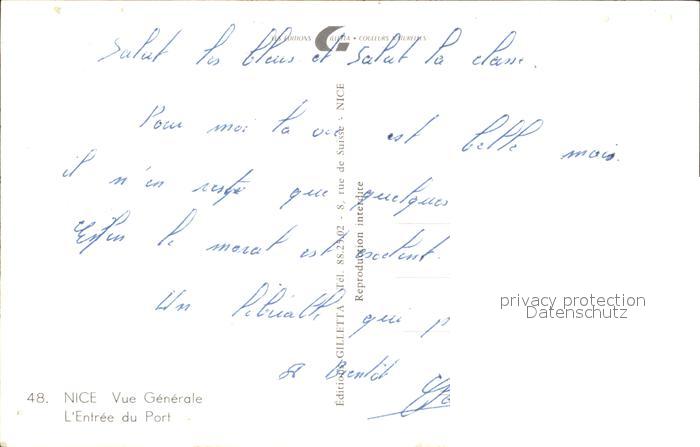 LES ÉDITIONS GILLETTA • COULEURS NATURELLES
Salut les bleus et salut la classe.
Pour moi la vie est belle mais
il n'en reste que quelques
Enfin le moral est excellent.
Un libérable qui p
A Bientôt
Éditions GILLETTA - Tél. 88.23.02 - 8, rue de Suisse - NICE
Reproduction interdite
privacy protection
Datenschutz
48. NICE Vue Générale
L'Entrée du Port